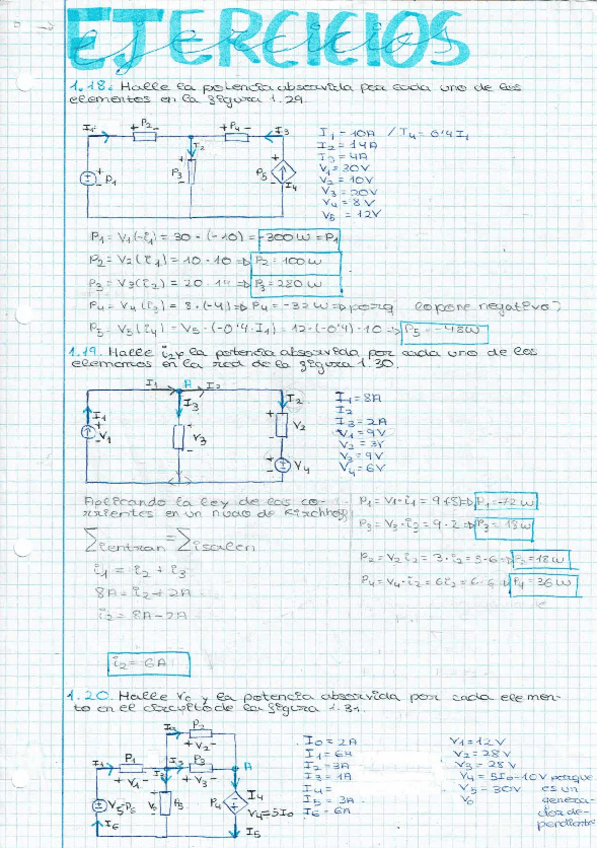 EJERCICIOS
ejercicios
1.18. Halle la potencia absorvida por cada uno de los
elementos en la figura 1.29.
I1 P2 P4 I3
I2
P1 P3 P5 I4
I1 = 10A / I4 = 0'4 I1
I2 = 14A
I3 = 4A
V1 = 30V
V2 = 10V
V3 = 20V
V4 = 8V
V5 = 12V
P1 = V1(-i1) = 30 · (-10) = -300W = P1
P2 = V2(i1) = 10 · 10 => P2 = 100W
P3 = V3(i2) = 20 · 14 => P3 = 280W
P4 = V4(i3) = 8 · (-4) => P4 = -32W => porq lo pone negativo?
P5 = V5(i4) = V5 · (-0'4 · I1) = 12 · (-0'4) · 10 => P5 = -48W
1.19. Halle i2 y la potencia absorvida por cada uno de los
elementos en la red de la figura 1.30.
I1 A I2
I3 I2
I1 V1 V3 V2
V4
I1 = 8A
I2
I3 = 2A
V1 = 9V
V2 = 3V
V3 = 9V
V4 = 6V
Aplicando la ley de las co-
rrientes en un nudo de Kirchhoff
∑ientran = ∑isalen
i1 = i2 + i3
8A = i2 + 2A
i2 = 8A - 2A
i2 = 6A
P1 = V1 · i1 = 9(8) => P1 = -72W
P3 = V3 · i3 = 9 · 2 => P3 = 18W
P2 = V2 i2 = 3 · i2 = 3 · 6 => P2 = 18W
P4 = V4 · i2 = 6 i2 = 6 · 6 => P4 = 36W
1.20. Halle V0 y la potencia absorvida por cada elemen-
to en el circuito de la figura 1.31.
P2
+ V2 -
I1 P1 I2 P3 A
+ V1 - + V3 -
V5 P3 P4 I4
V4=5I0
I6 I5
I0 = 2A
I1 = 6A
I2 = 3A
I3 = 1A
I4 =
I5 = 3A
I6 = 6A
V1 = 12V
V2 = 28V
V3 = 28V
V4 = 5I0 = 10V porque
V5 = 30V es un
V6 genera-
dor de-
pendiente